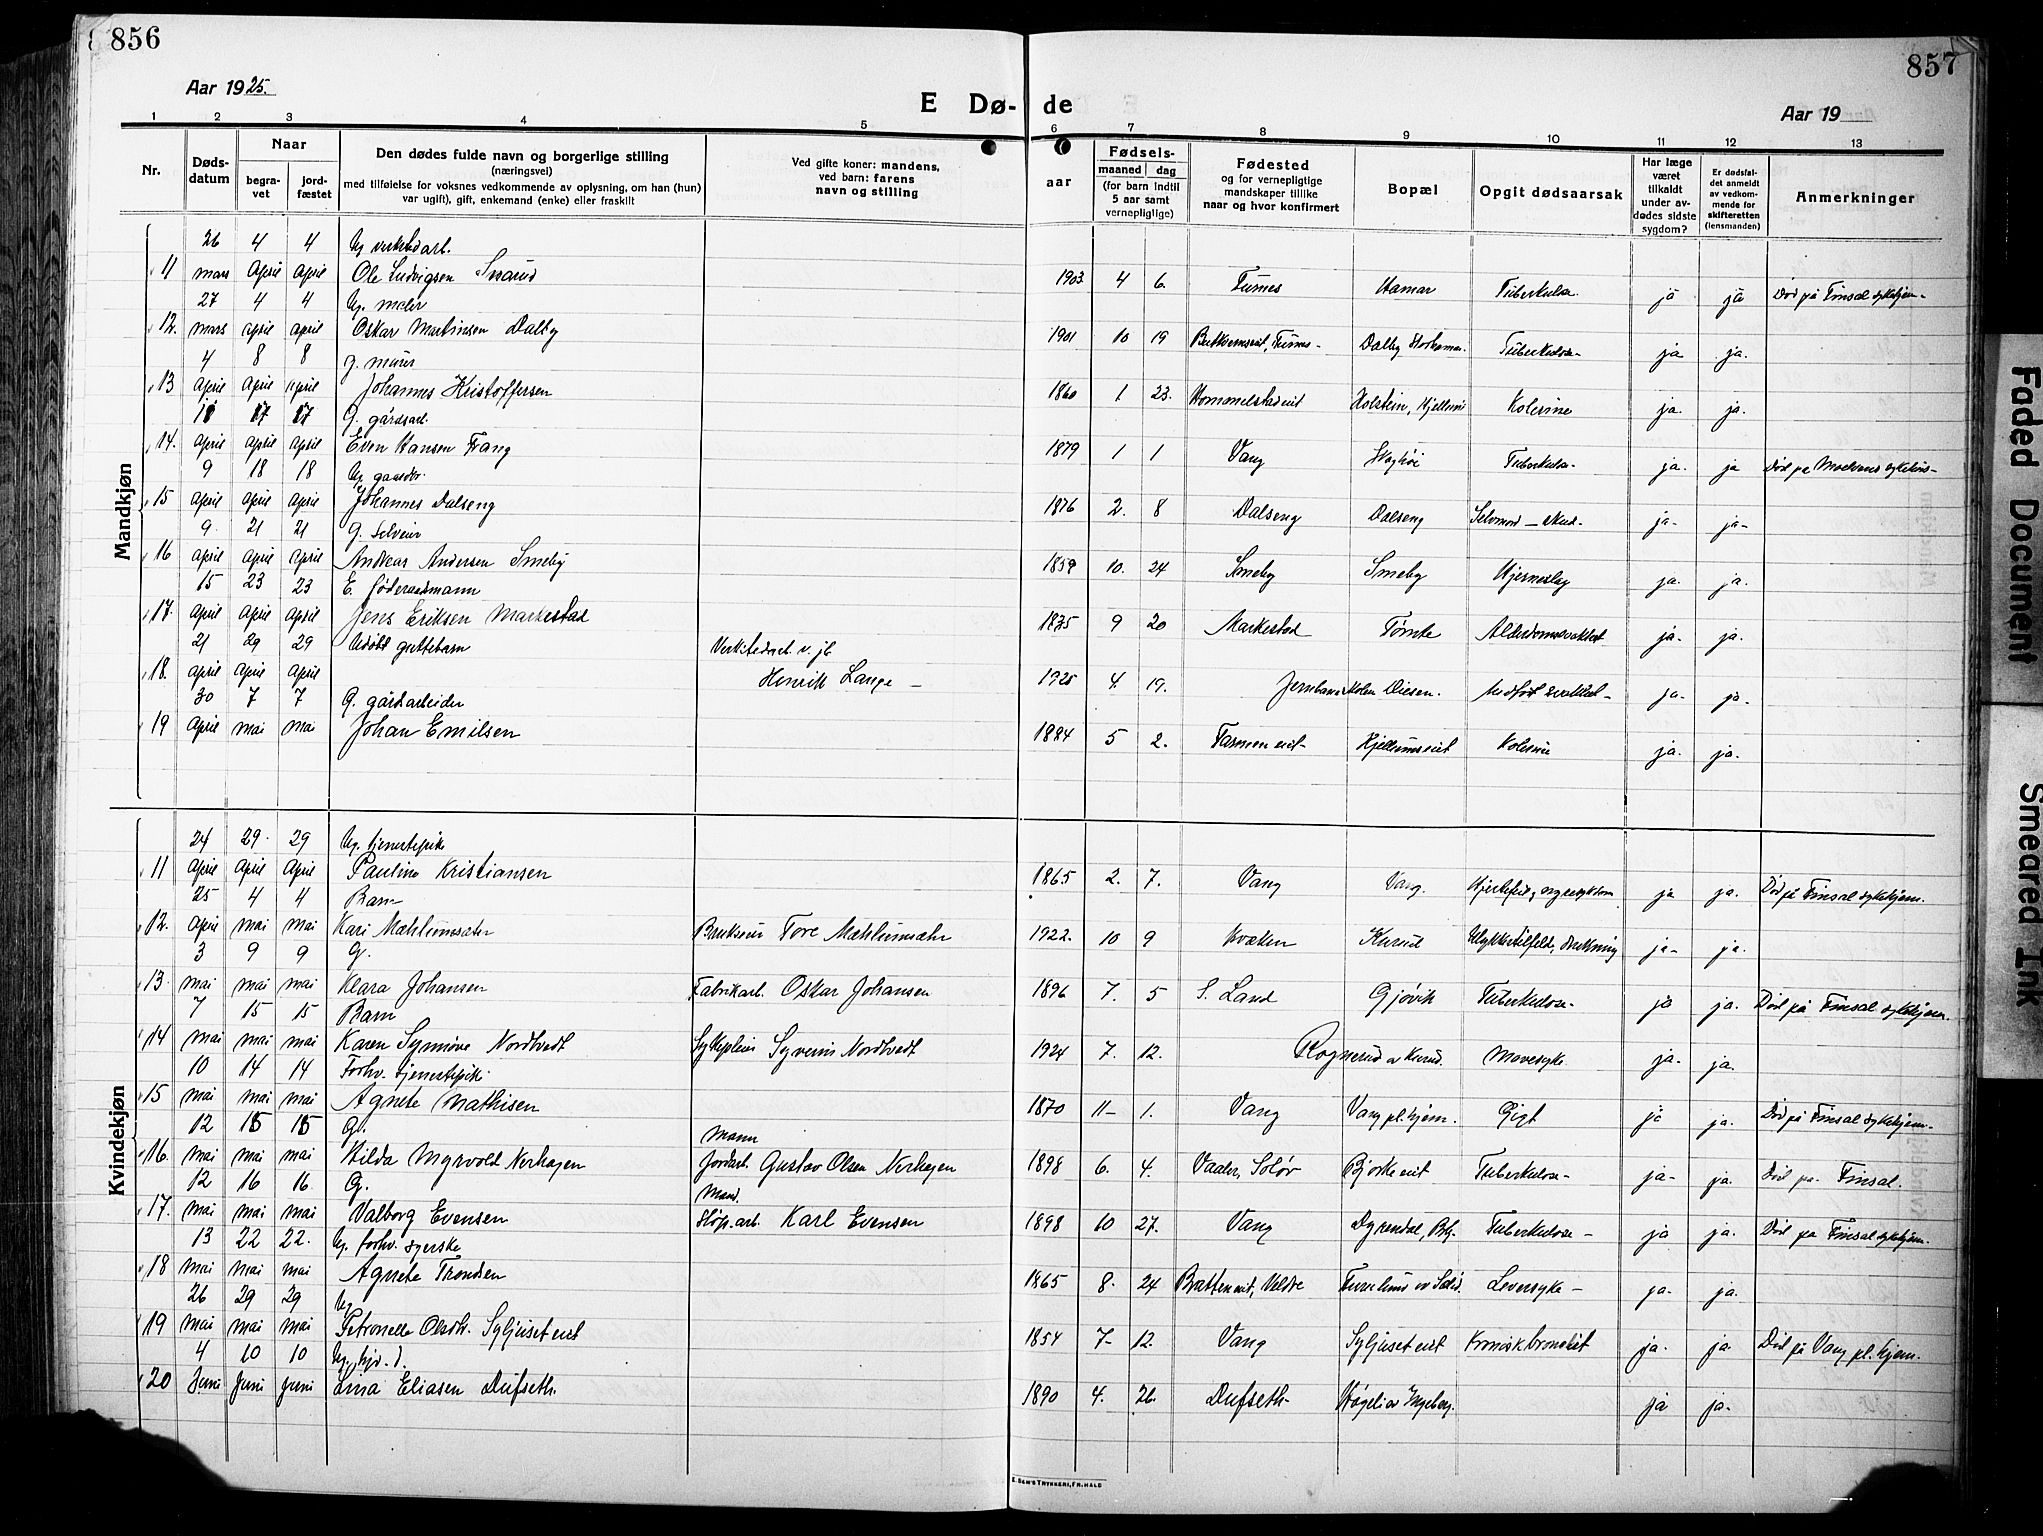 856
857
Aar 1925.
E Dø- de
Aar 19
1 2 3 4 5 6 7 8 9 10 11 12 13
Nr.
Døds-
datum
Naar
begra-
vet
jord-
fæstet
Den dødes fulde navn og borgerlige stilling
(næringsvei)
med tilføielse for voksnes vedkommende av oplysning, om han (hun)
var ugift), gift, enkemand (enke) eller fraskilt
Ved gifte koner: mandens,
ved barn: farens
navn og stilling
aar
Fødsels-
maaned dag
(for barn indtil
5 aar samt
vernepligtige)
Fødested
og for vernepligtige
mandskaper tillike
naar og hvor konfirmert
Bopæl
Opgit dødsaarsak
Har læge
været
tilkaldt
under av-
dødes sidste
sygdom?
Er dødsfal-
det anmeldt
av vedkom-
mende for
skifteretten
(lensmanden)
Anmerkninger
Mandkjøn
26 4 4 Ug. verkstedarb.
11 mars April April Ole Ludvigsen Snarud 1903 4 6. Furnes Hamar Tuberkulose ja ja Død på Finsal sykehjem-
27 4 4 Ug. maler
12. mars april april Oskar Martinsen Dalby 1901 10 19 Dalby Tuberkulose- ja ja.
4 8 8 g. murer
13 April April April Johannes Kristoffersen 1860 1 23. Hommelstadeiet Holstein, Hjellum Kolerine ja. ja.
11 17 17 G. gårdsarb.
14. April April April Even Hansen Frang 1879 1 1 Vang Skoghøi Tuberkulose- ja. ja Død på
9 18 18 Ug. gaardbr.
15 April April April Johannes Dalseng 1876 2. 8 Dalseng Dalseng Selvmord - skud- ja- ja-
9. 21 21 G. Selveier
16 April April April Andreas Andersen Smeby 1859 10. 24 Smeby Smeby Hjerneslag ja. ja.
15 23 23 E. føderaadmann
17. April April April Jens Eriksen Markestad 1835 9 20 Markestad Tømte ja- ja.
21 29 29 Udøbt guttebarn Verkstedarb. v. jb
18. April April April Henrik Lange - 1925 4. 19. Medfødt svakhet- ja- ja.
30 7 7 G. gårdarbeider
19 April mai mai Johan Emilsen 1884 5 2. Hjellumseiet Kolerine ja. ja.
Kvindekjøn
24 29. 29 Ug. tjenestepike
11 April April April Pauline Kristiansen 1865 2. 7. Vang Vang. ja ja. Død på Finsal sykehjem.
25 4 4 Barn
12. April mai mai Kari Mæhlumsæter Brukseier Tore Mæhlumsæter 1922. 10 9 Kurud Ulykkestilfelde, drukning ja- ja.
3 9 9 G.
13 mai mai mai Klara Johansen Fabrikarb. Oskar Johansen 1896 7. 5 S. Land Gjøvik Tuberkulose- ja ja. Død på Finsal sykehjem.
7 15 15 Barn
14 mai mai mai Karen Synnøve Nordtvedt Sykepleier Syverin Nordtvedt 1924 7. 12. Rognerud av Kurud. Mavesyke ja- ja.
10 14 14 Forhv. tjenestepike
15 mai mai mai Agnete Mathisen 1870 11- 1. Vang Vang pl.hjem. Gigt ja ja. Død på Finsal sykehjem.
12 15 15 G. Mann
16. mai mai mai Hilda Myrvold Nerhagen Jordarb. Gustav Olsen Nerhagen 1898 6. 4. Vaaler, Solør Bjørkeeiet Tuberkulose- ja- ja. Død på Finsal.
12 16 16. G. Mand.
17. mai mai mai Valborg Evensen Karl Evensen 1898 10 27. Vang Tuberkulose - ja ja. Død på Finsal sykehjem.
13 22 22. Ug. forhv. syerske
18 mai mai mai Agnete Trondsen 1865 8. 24 Bratteneiet, Veldre Leversyke - ja. ja.
26 29 29 Ug
19 mai mai mai Petronelle Olsdtr. Syljuseteiet 1854 7- 12. Vang Syljuseteiet Kronisk bronchit ja. ja. Død på Vang pl.hjem.
4 10 10 Ug.
20 Juni Juni Juni Lina Eliasen Dufseth. 1890 4. 26. Dufseth- ja ja.
E. SEM'S TRYKKERI, FR.HALD
Faded Document
Smeared Ink